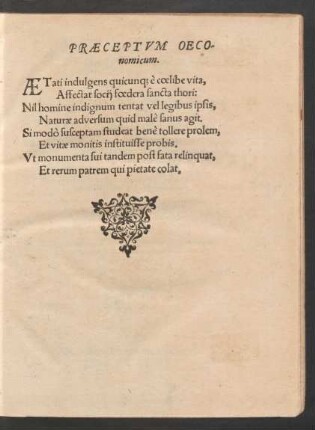 PRÆCEPTVM OECO-
nomicum.
ÆTati indulgens quicunq; è cœlibe vita,
Affectat socij fœdera sancta thori:
Nil homine indignum tentat vel legibus ipsis,
Naturæ adversum quid malè sanus agit.
Si modò susceptam studeat benè tollere prolem,
Et vitæ monitis instituisse probis,
Vt monumenta sui tandem post fata relinquat,
Et rerum patrem qui pietate colat,